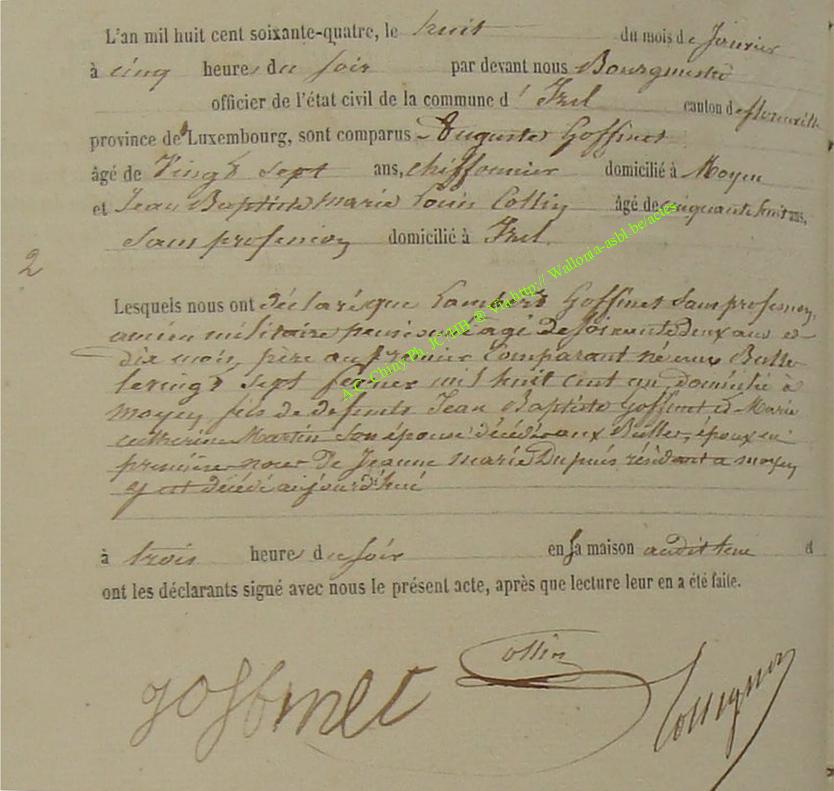 L'an mil huit cent soixante-quatre, le huit du mois de Janvier
à cinq heures du soir par devant nous Bourgmestre
officier de l'état civil de la commune d'Izel canton de florenville
province de Luxembourg, sont comparus Auguste Goffinet
âgé de Vingt sept ans, chiffonnier domicilié à Moyen
et Jean Baptiste Marie Louis Collin âgé de cinquante huit ans,
Sans profession domicilié à Izel
2
Lesquels nous ont déclaré que Lambert Goffinet Sans profession,
ancien militaire pensionné agé de Soixante deux ans et
dix mois, père au premier Comparant né aux Bulles
le vingt Sept fevrier mil huit cent un domicilié à
Moyen fils de defunts Jean Baptiste Goffinet et Marie
catherine Martin Son épouse décédés aux Bulles, époux en
première noce de Jeanne Marie Dupuis résidant a Moyen
y est décédé aujourd'hui
à trois heures du soir en sa maison audit lieu et
ont les déclarants signé avec nous le présent acte, après que lecture leur en a été faite.
goffinet Collin
A.C. Chiny Ph. JC HB @ via http:// Wallonia-asbl.be/actes